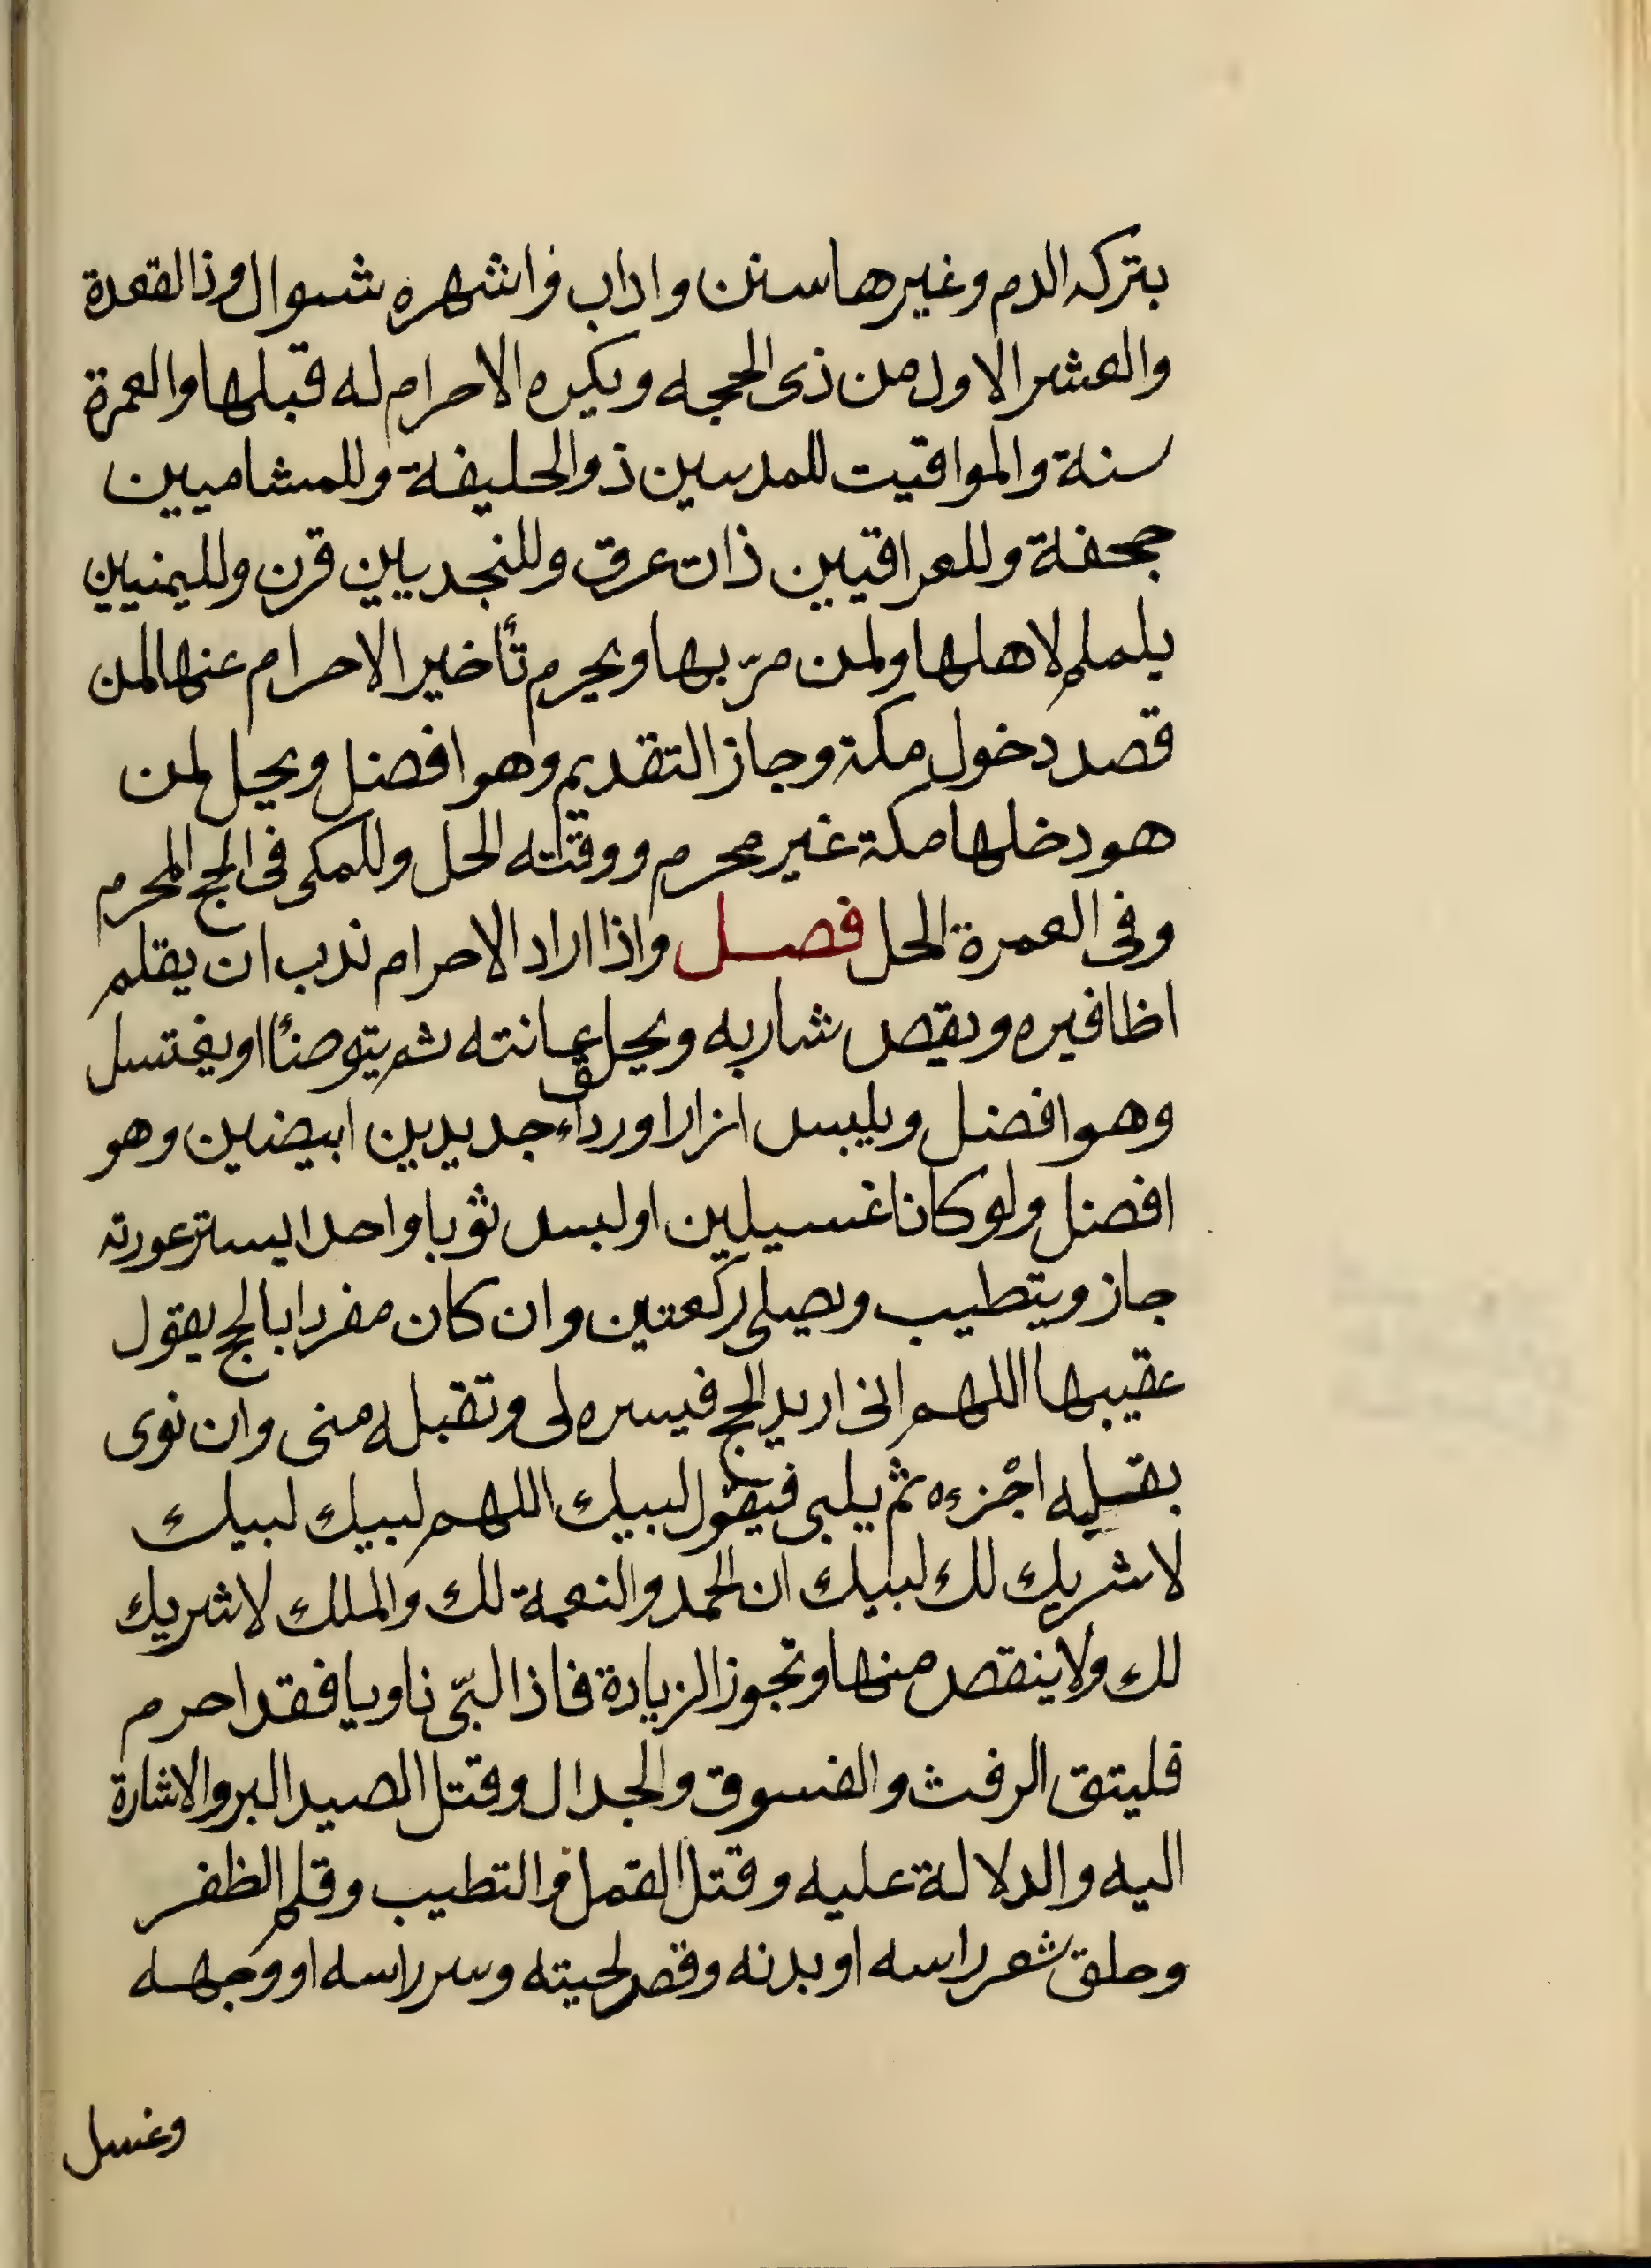 بتركه الدم وغيرها سنن واداب واشهره شوال وذالقعدة
والعشر الاول من ذى الحجه ويكره الاحرام له قبلها والعمرة
سنة والمواقيت للمدنيين ذو الحليفة وللشاميين
جحفة وللعراقيين ذات عرق وللنجديين قرن ولليمنيين
يلملم لاهلها ولمن مرّ بها ويحرم تأخير الاحرام عنها لمن
قصد دخول مكة وجاز التقديم وهو افضل ويحل لمن
هو دخلها مكة غير محرم ووقتته الحل وللمكى فى الحج المحرم
وفى العمرة الحل فصل واذا اراد الاحرام ندب ان يقلم
اظافيره ويقص شاربه ويحلق عانته ثم يتوضأ او يغتسل
وهو افضل ويلبس ازارا ورداء جديدين ابيضين وهو
افضل ولو كانا غسيلين او لبس ثوبا واحدا يستر عورته
جاز ويتطيب ويصلى ركعتين وان كان مفردا بالحج يقول
عقيبها اللهم انى اريد الحج فيسره لى وتقبله منى وان نوى
بقلبه اجزءه ثم يلبى فيقول لبيك اللهم لبيك لبيك
لا شريك لك لبيك ان الحمد والنعمة لك والملك لا شريك
لك ولا ينقص منها وتجوز الزيادة فاذا لبّى ناويا فقد احرم
فليتق الرفث والفسوق والجدال وقتل الصيد البر والاشارة
اليه والدلالة عليه وقتل القمل والتطيب وقلم الظفر
وحلق شعر راسه او بدنه وقص لحيته وستر راسه او وجهه
وغسل